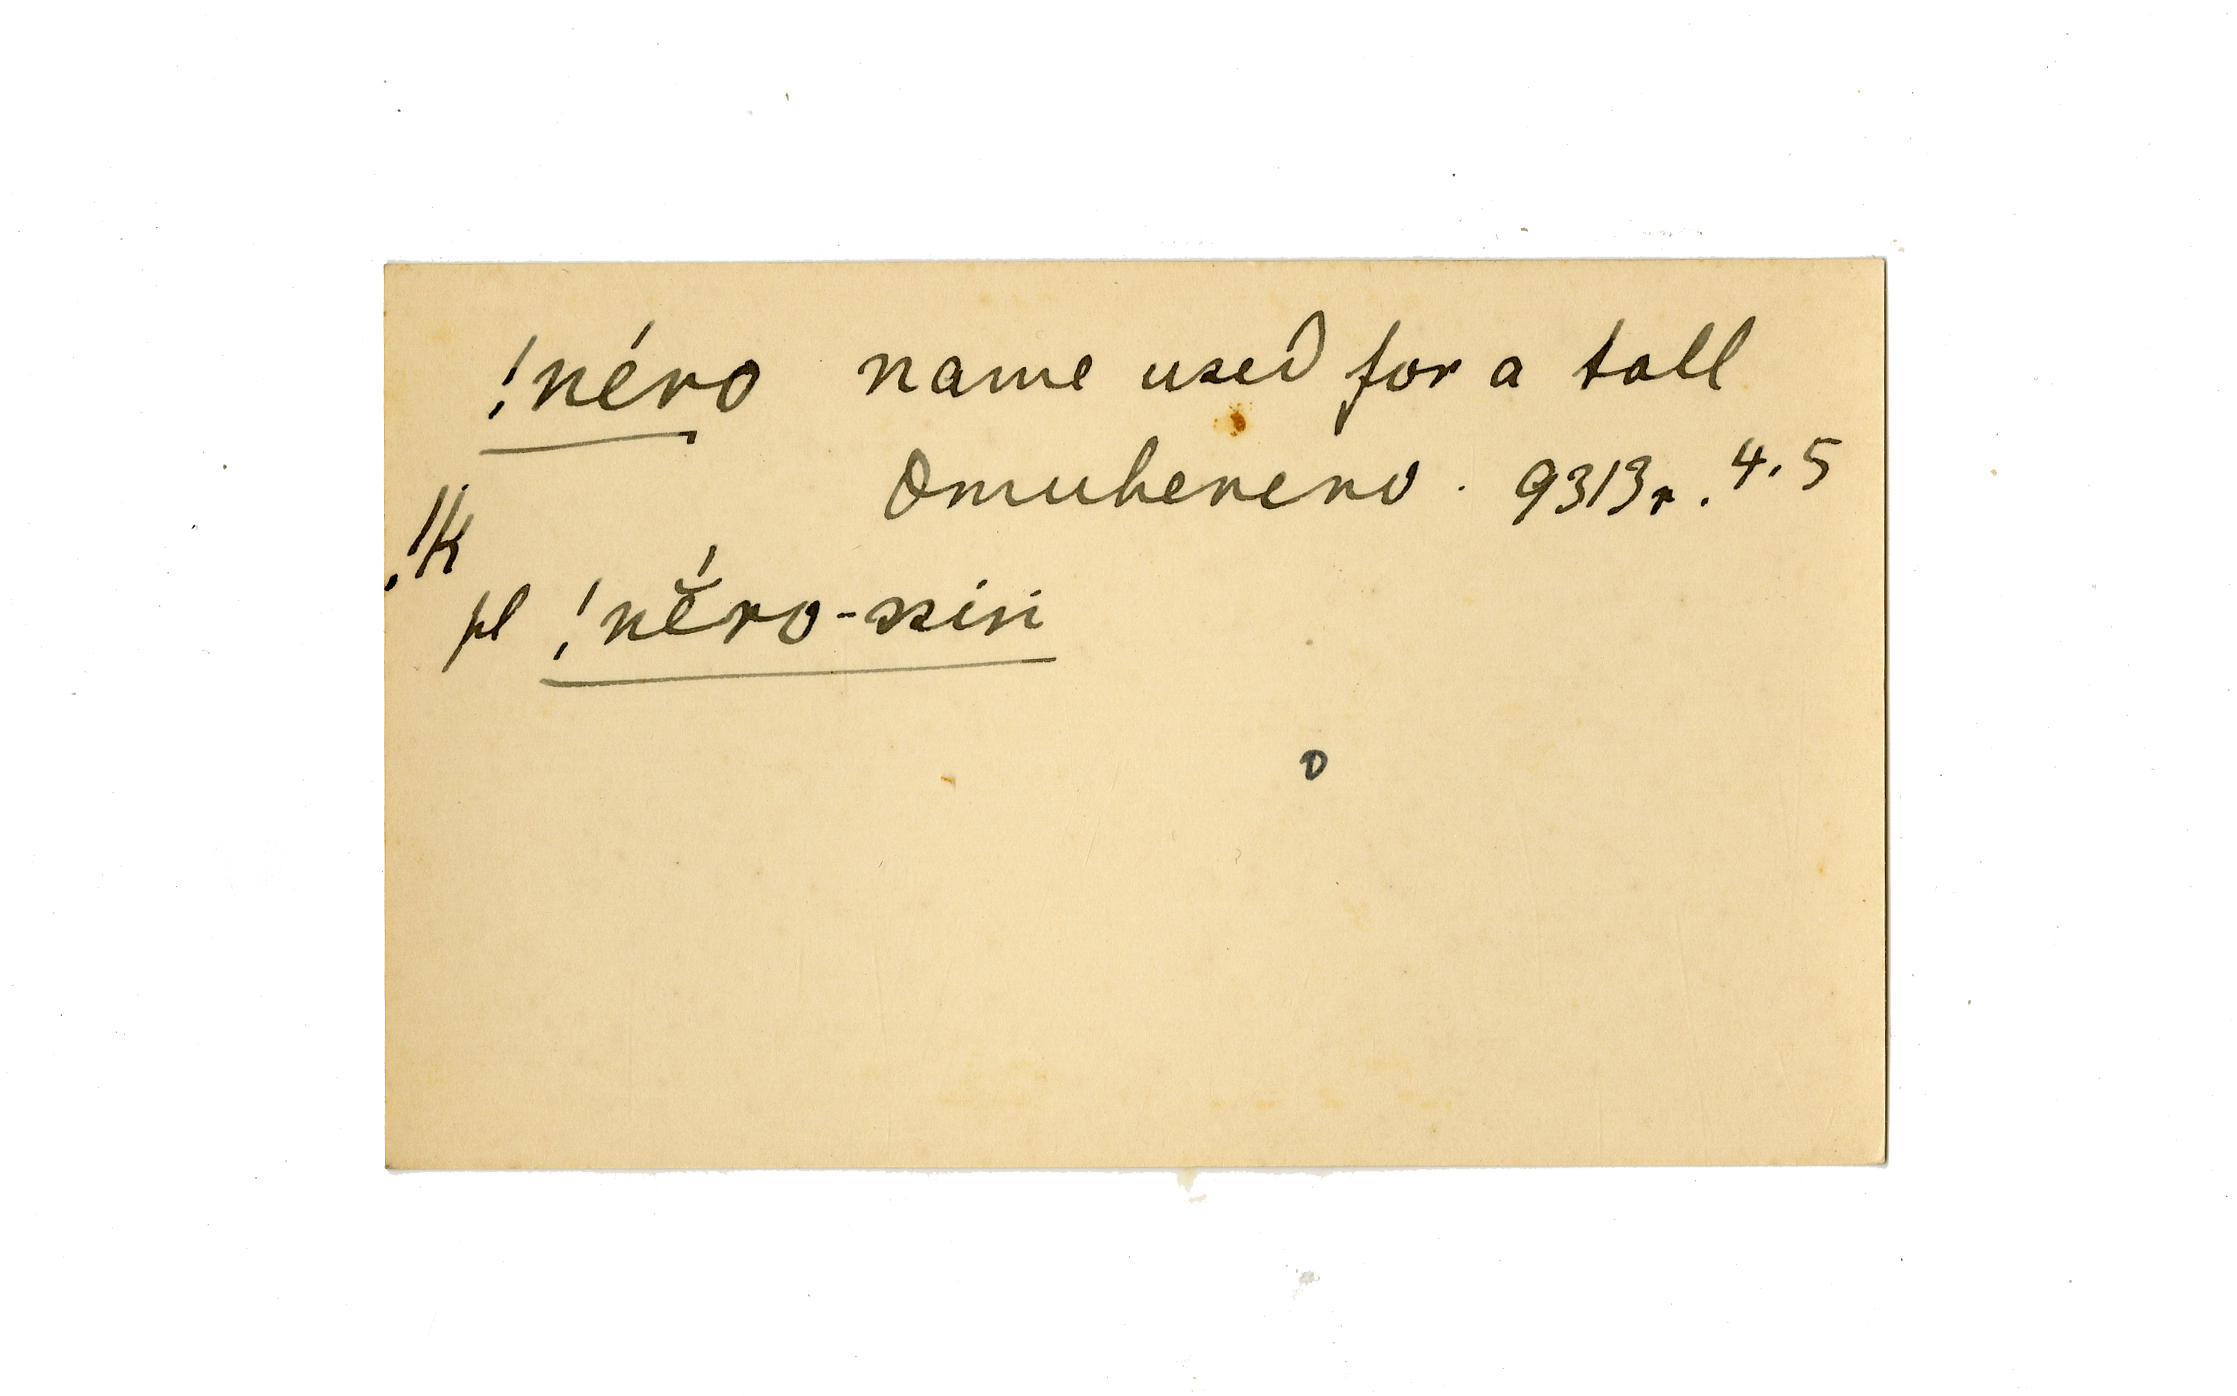 !néro name used for a tall
Omuherero. 9313r. 4.5
!k
pl !nĕ́ro-ssin
o